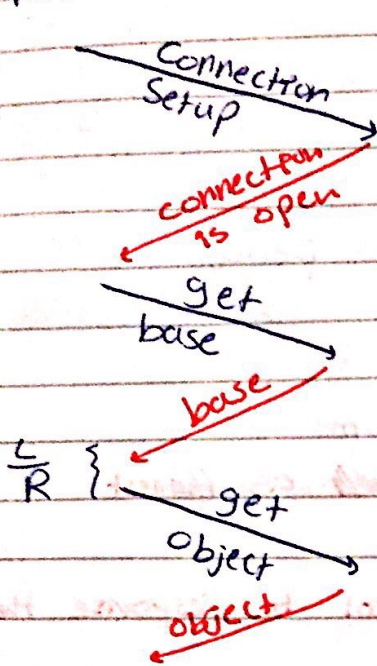 Connection
Setup
connection
is open
get
base
base
L
R
get
object
object